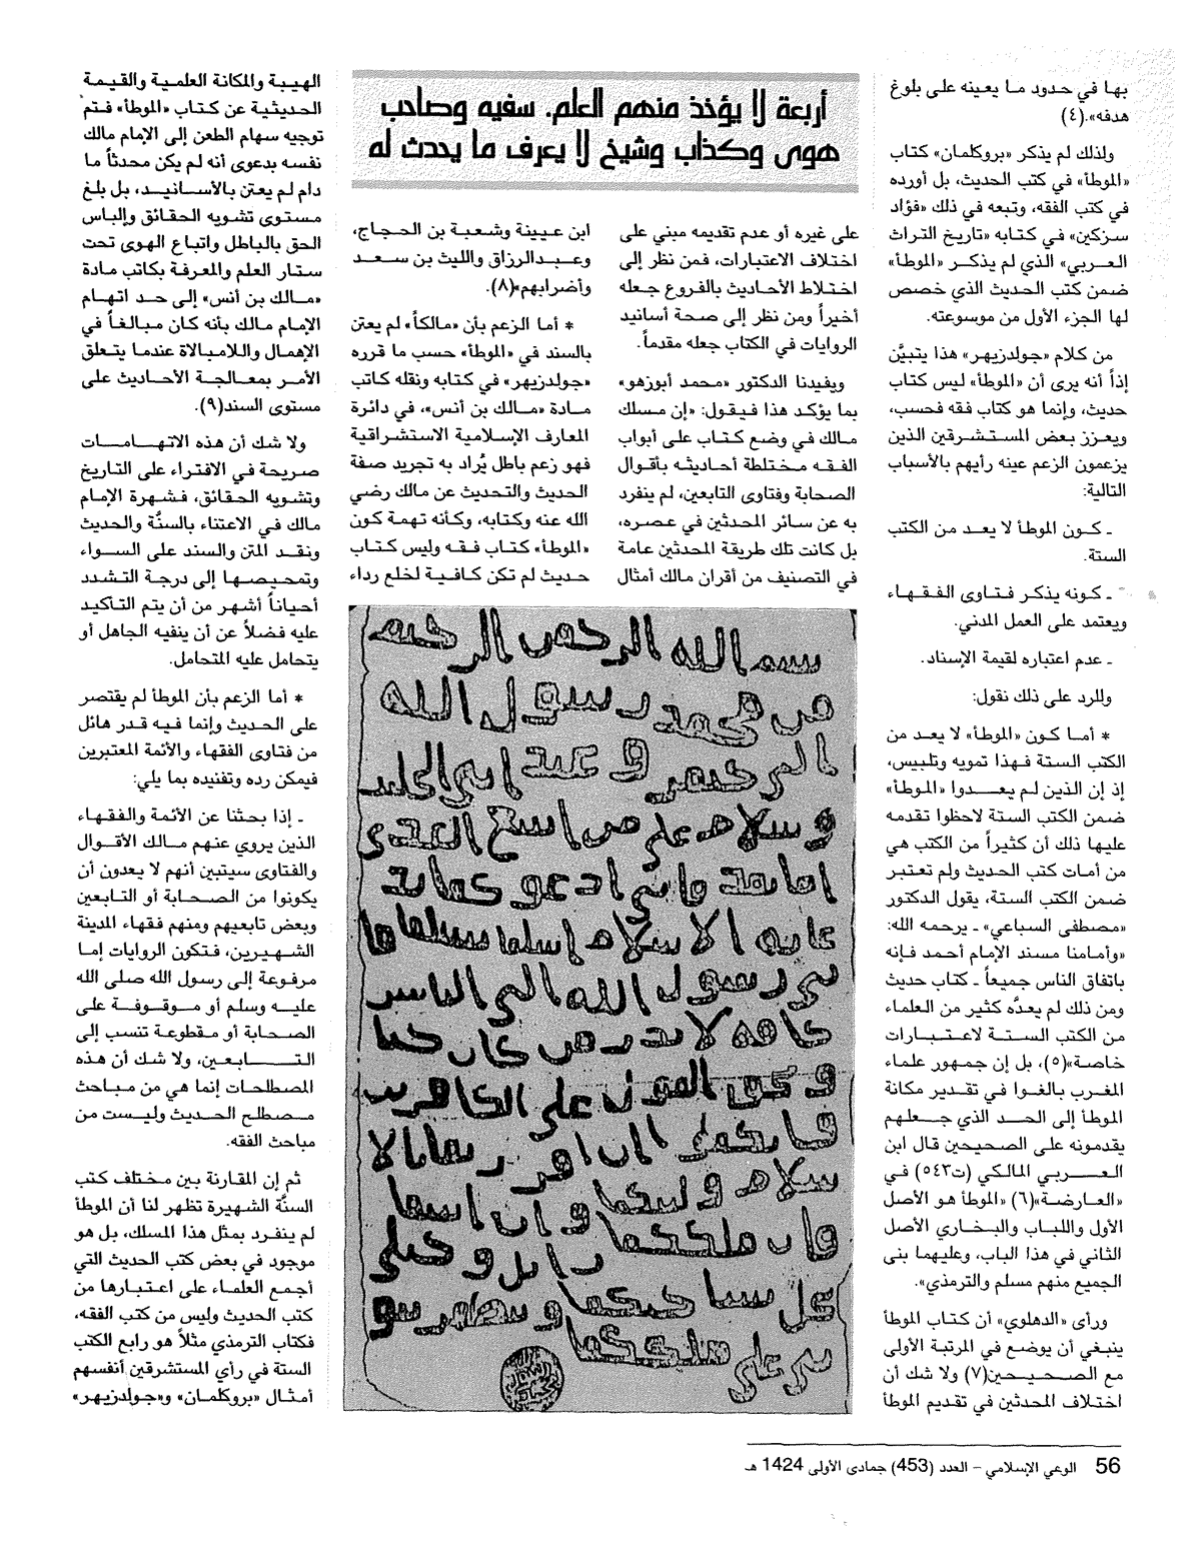 بها في حدود ما يعينه على بلوغ
هدفه».(٤)
ولذلك لم يذكر «بروكلمان» كتاب
«الموطأ» في كتب الحديث، بل أورده
في كتب الفقه، وتبعه في ذلك «فؤاد
سزكين» في كتابه «تاريخ التراث
العربي» الذي لم يذكر «الموطأ»
ضمن كتب الحديث الذي خصص
لها الجزء الأول من موسوعته.
من كلام «جولدزيهر» هذا يتبيَّن
إذاً أنه يرى أن «الموطأ» ليس كتاب
حديث، وإنما هو كتاب فقه فحسب،
ويعزز بعض المستشرقين الذين
يزعمون الزعم عينه رأيهم بالأسباب
التالية:
ـ كون الموطأ لا يعد من الكتب
الستة.
ـ كونه يذكر فتاوى الفقهاء
ويعتمد على العمل المدني.
ـ عدم اعتباره لقيمة الإسناد.
وللرد على ذلك نقول:
* أما كون «الموطأ» لا يعد من
الكتب الستة فهذا تمويه وتلبيس،
إذ إن الذين لم يعدوا «الموطأ»
ضمن الكتب الستة لاحظوا تقدمه
عليها ذلك أن كثيراً من الكتب هي
من أمات كتب الحديث ولم تعتبر
ضمن الكتب الستة، يقول الدكتور
«مصطفى السباعي» ـ يرحمه الله:
«وأمامنا مسند الإمام أحمد فإنه
باتفاق الناس جميعاً ـ كتاب حديث
ومن ذلك لم يعدَّه كثير من العلماء
من الكتب الستة لاعتبارات
خاصة»(٥)، بل إن جمهور علماء
المغرب بالغوا في تقدير مكانة
الموطأ إلى الحد الذي جعلهم
يقدمونه على الصحيحين قال ابن
العربي المالكي (ت٥٤٣) في
«العارضة»(٦) «الموطأ هو الأصل
الأول واللباب والبخاري الأصل
الثاني في هذا الباب، وعليهما بنى
الجميع منهم مسلم والترمذي».
ورأى «الدهلوي» أن كتاب الموطأ
ينبغي أن يوضع في المرتبة الأولى
مع الصحيحين(٧) ولا شك أن
اختلاف المحدثين في تقديم الموطأ
أربعة لا يؤخذ منهم العلم. سفيه وصاحب
هوى وكذاب وشيخ لا يعرف ما يحدث له
على غيره أو عدم تقديمه مبني على
اختلاف الاعتبارات، فمن نظر إلى
اختلاط الأحاديث بالفروع جعله
أخيراً ومن نظر إلى صحة أسانيد
الروايات في الكتاب جعله مقدماً.
ويفيدنا الدكتور «محمد أبوزهو»
بما يؤكد هذا فيقول: «إن مسلك
مالك في وضع كتاب على أبواب
الفقه مختلطة أحاديثه بأقوال
الصحابة وفتاوى التابعين، لم ينفرد
به عن سائر المحدثين في عصره،
بل كانت تلك طريقة المحدثين عامة
في التصنيف من أقران مالك أمثال
ابن عيينة وشعبة بن الحجاج،
وعبدالرزاق والليث بن سعد
وأضرابهم»(٨).
* أما الزعم بأن «مالكاً» لم يعتن
بالسند في «الموطأ» حسب ما قرره
«جولدزيهر» في كتابه ونقله كاتب
مادة «مالك بن أنس»، في دائرة
المعارف الإسلامية الاستشراقية
فهو زعم باطل يُراد به تجريد صفة
الحديث والتحديث عن مالك رضي
الله عنه وكتابه، وكأنه تهمة كون
«الموطأ» كتاب فقه وليس كتاب
حديث لم تكن كافية لخلع رداء
بسم الله الرحمن الرحيم
من محمد رسول الله
الهيبة والمكانة العلمية والقيمة
الحديثية عن كتاب «الموطأ» فتم
توجيه سهام الطعن إلى الإمام مالك
نفسه بدعوى أنه لم يكن محدثاً ما
دام لم يعتن بالأسانيد، بل بلغ
مستوى تشويه الحقائق وإلباس
الحق بالباطل واتباع الهوى تحت
ستار العلم والمعرفة بكاتب مادة
«مالك بن أنس» إلى حد اتهام
الإمام مالك بأنه كان مبالغاً في
الإهمال واللامبالاة عندما يتعلق
الأمر بمعالجة الأحاديث على
مستوى السند(٩).
ولا شك أن هذه الاتهامات
صريحة في الافتراء على التاريخ
وتشويه الحقائق، فشهرة الإمام
مالك في الاعتناء بالسنُة والحديث
ونقد المتن والسند على السواء
وتمحيصها إلى درجة التشدد
أحياناً أشهر من أن يتم التأكيد
عليه فضلاً عن أن ينفيه الجاهل أو
يتحامل عليه المتحامل.
* أما الزعم بأن الموطأ لم يقتصر
على الحديث وإنما فيه قدر هائل
من فتاوى الفقهاء والأئمة المعتبرين
فيمكن رده وتفنيده بما يلي:
ـ إذا بحثنا عن الأئمة والفقهاء
الذين يروي عنهم مالك الأقوال
والفتاوى سيتبين أنهم لا يعدون أن
يكونوا من الصحابة أو التابعين
وبعض تابعيهم ومنهم فقهاء المدينة
الشهيرين، فتكون الروايات إما
مرفوعة إلى رسول الله صلى الله
عليه وسلم أو موقوفة على
الصحابة أو مقطوعة تنسب إلى
التابعين، ولا شك أن هذه
المصطلحات إنما هي من مباحث
مصطلح الحديث وليست من
مباحث الفقه.
ثم إن المقارنة بين مختلف كتب
السنُّة الشهيرة تظهر لنا أن الموطأ
لم ينفرد بمثل هذا المسلك، بل هو
موجود في بعض كتب الحديث التي
أجمع العلماء على اعتبارها من
كتب الحديث وليس من كتب الفقه،
فكتاب الترمذي مثلاً هو رابع الكتب
الستة في رأي المستشرقين أنفسهم
أمثال «بروكلمان» و«جولدزيهر»
56 الوعي الإسلامي – العدد (453) جمادى الأولى 1424 هـ